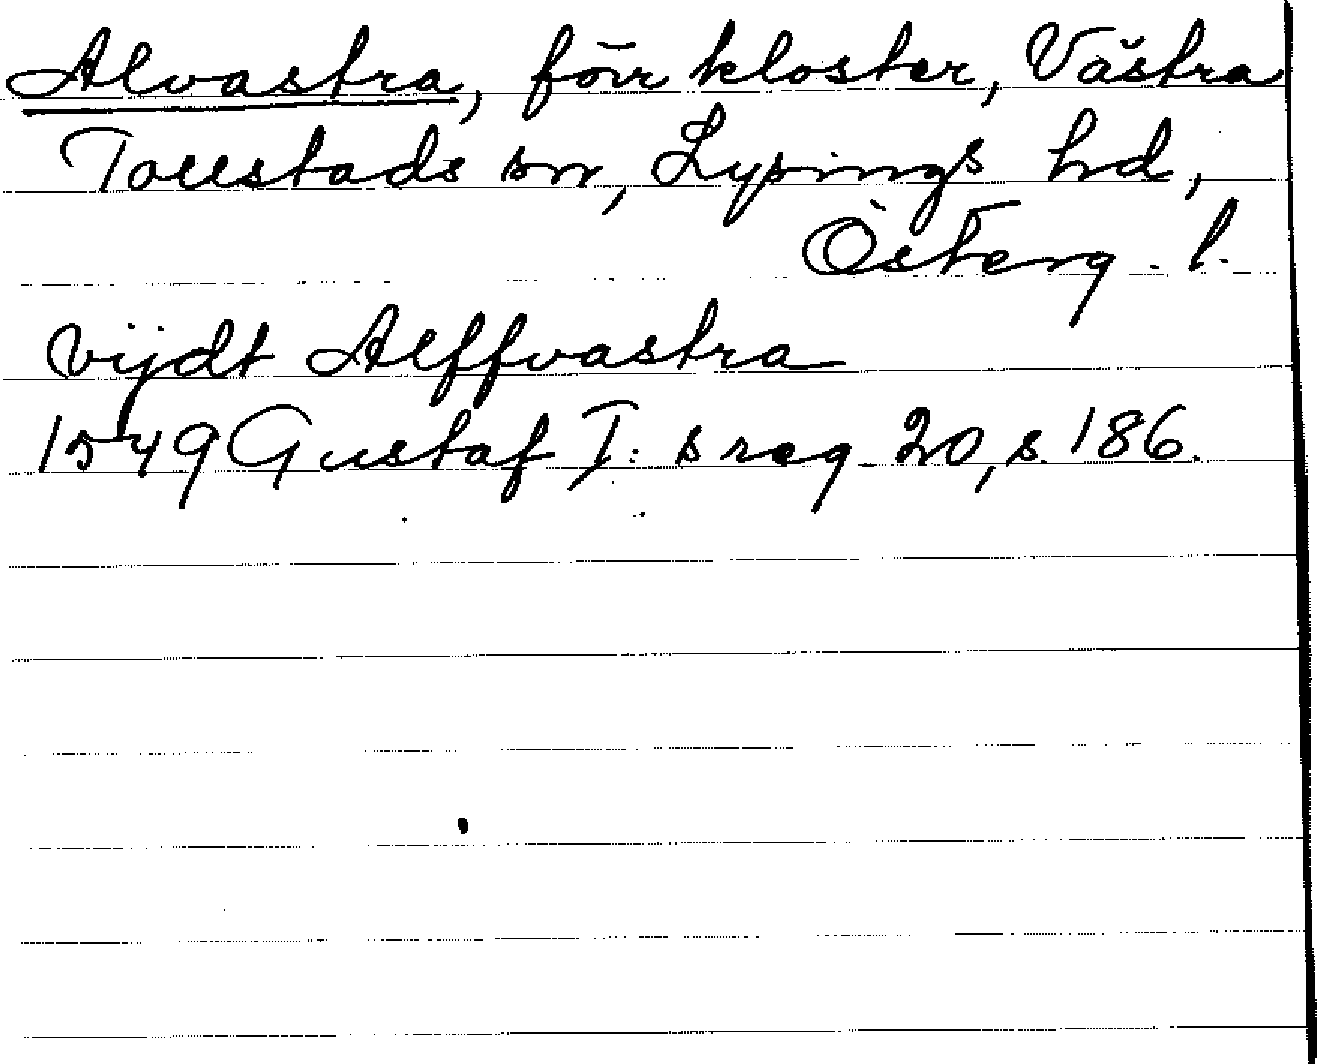 Alvastra, förr kloster, Västra
Tollstads sn, Lysings hd,
Österg. l.
vijdt Alffvastra
1549 Gustaf I:s reg 20, s. 186.